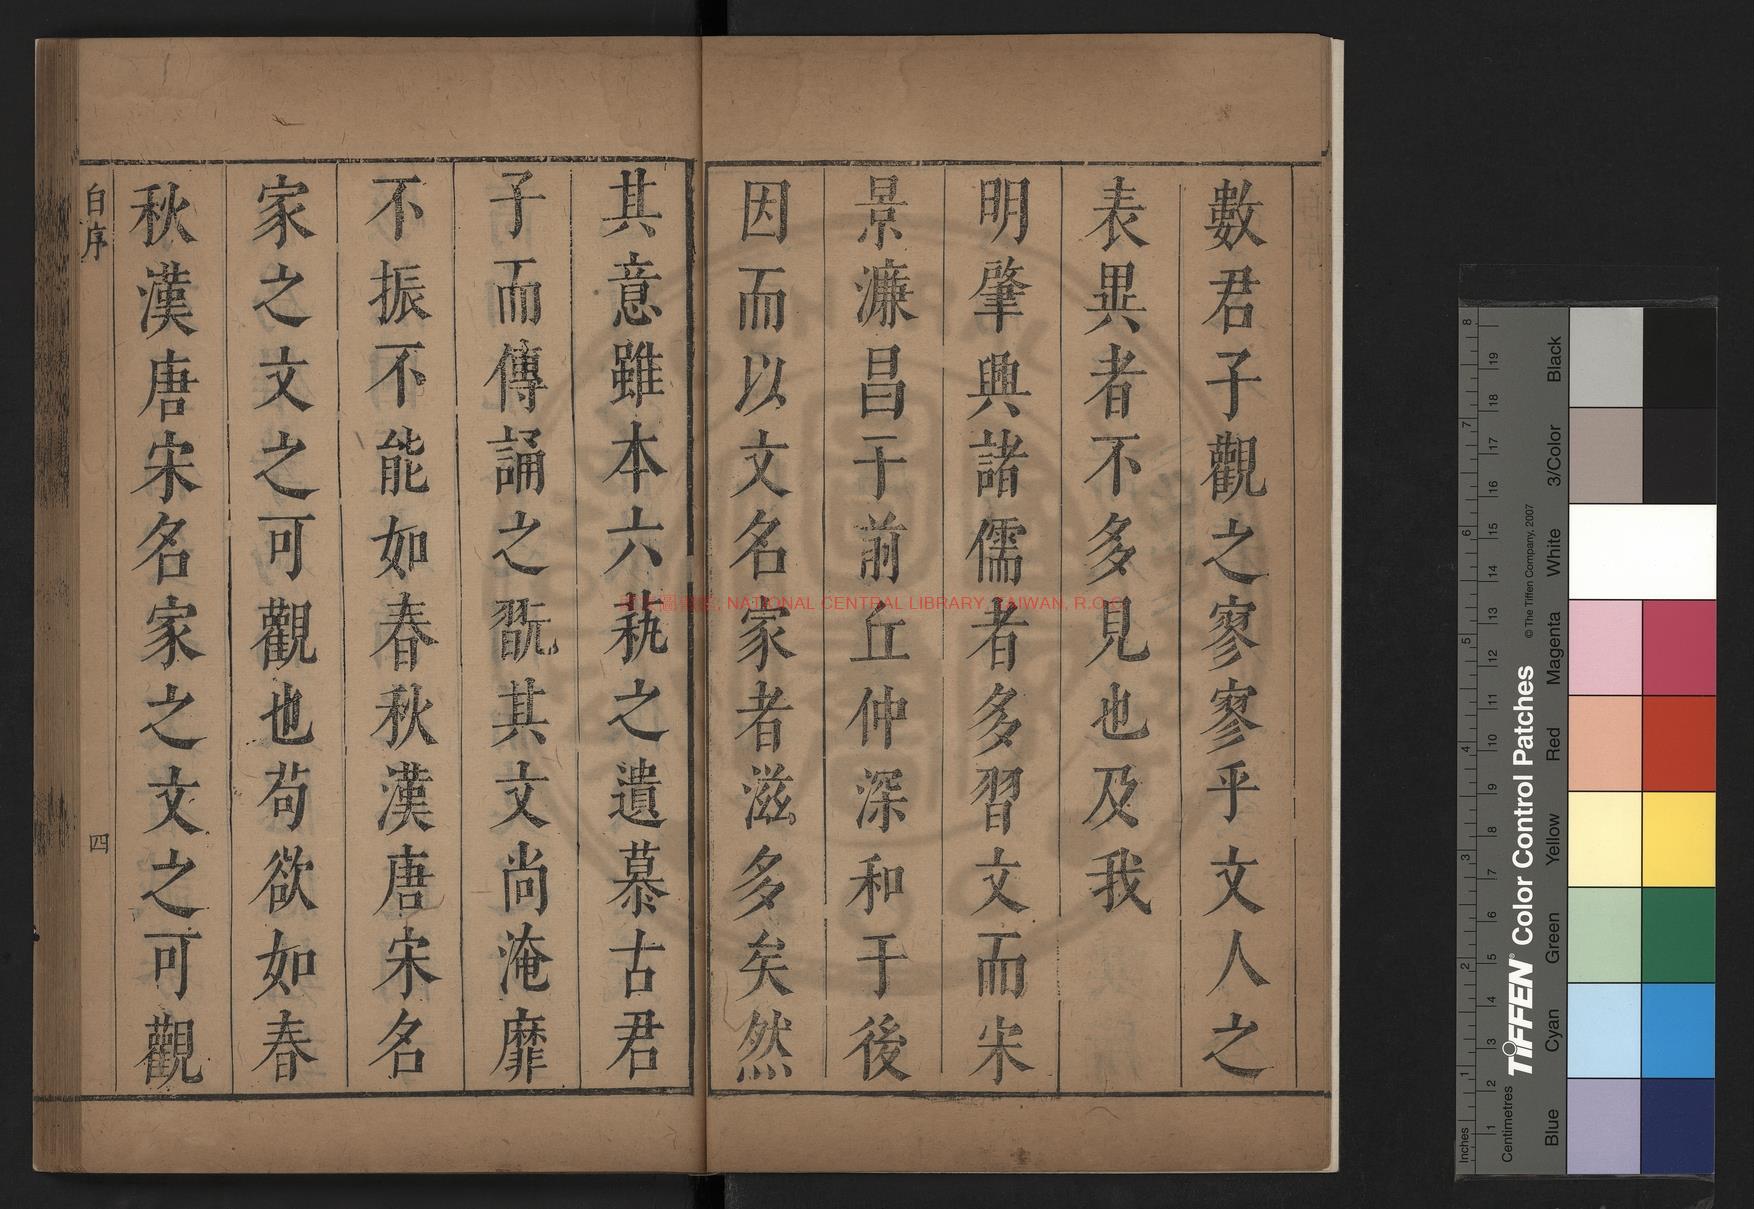 數君子觀之寥寥乎文人之
表異者不多見也及我
明肇興諸儒者多習文而宋
景濂昌于前丘仲深和于後
因而以文名家者滋多矣然
其意雖本六執之遺慕古君
子而傳誦之翫其文尚淹靡
不振不能如春秋漢唐宋名
家之文之可觀也苟欲如春
秋漢唐宋名家之文之可觀
自序
四
NATIONAL CENTRAL LIBRARY, TAIWAN, R.O.C
Inches
Centimetres
1 2 3 4 5 6 7 8
1 2 3 4 5 6 7 8 9 10 11 12 13 14 15 16 17 18 19
TIFFEN® Color Control Patches
© The Tiffen Company, 2007
Blue Cyan Green Yellow Red Magenta White 3/Color Black